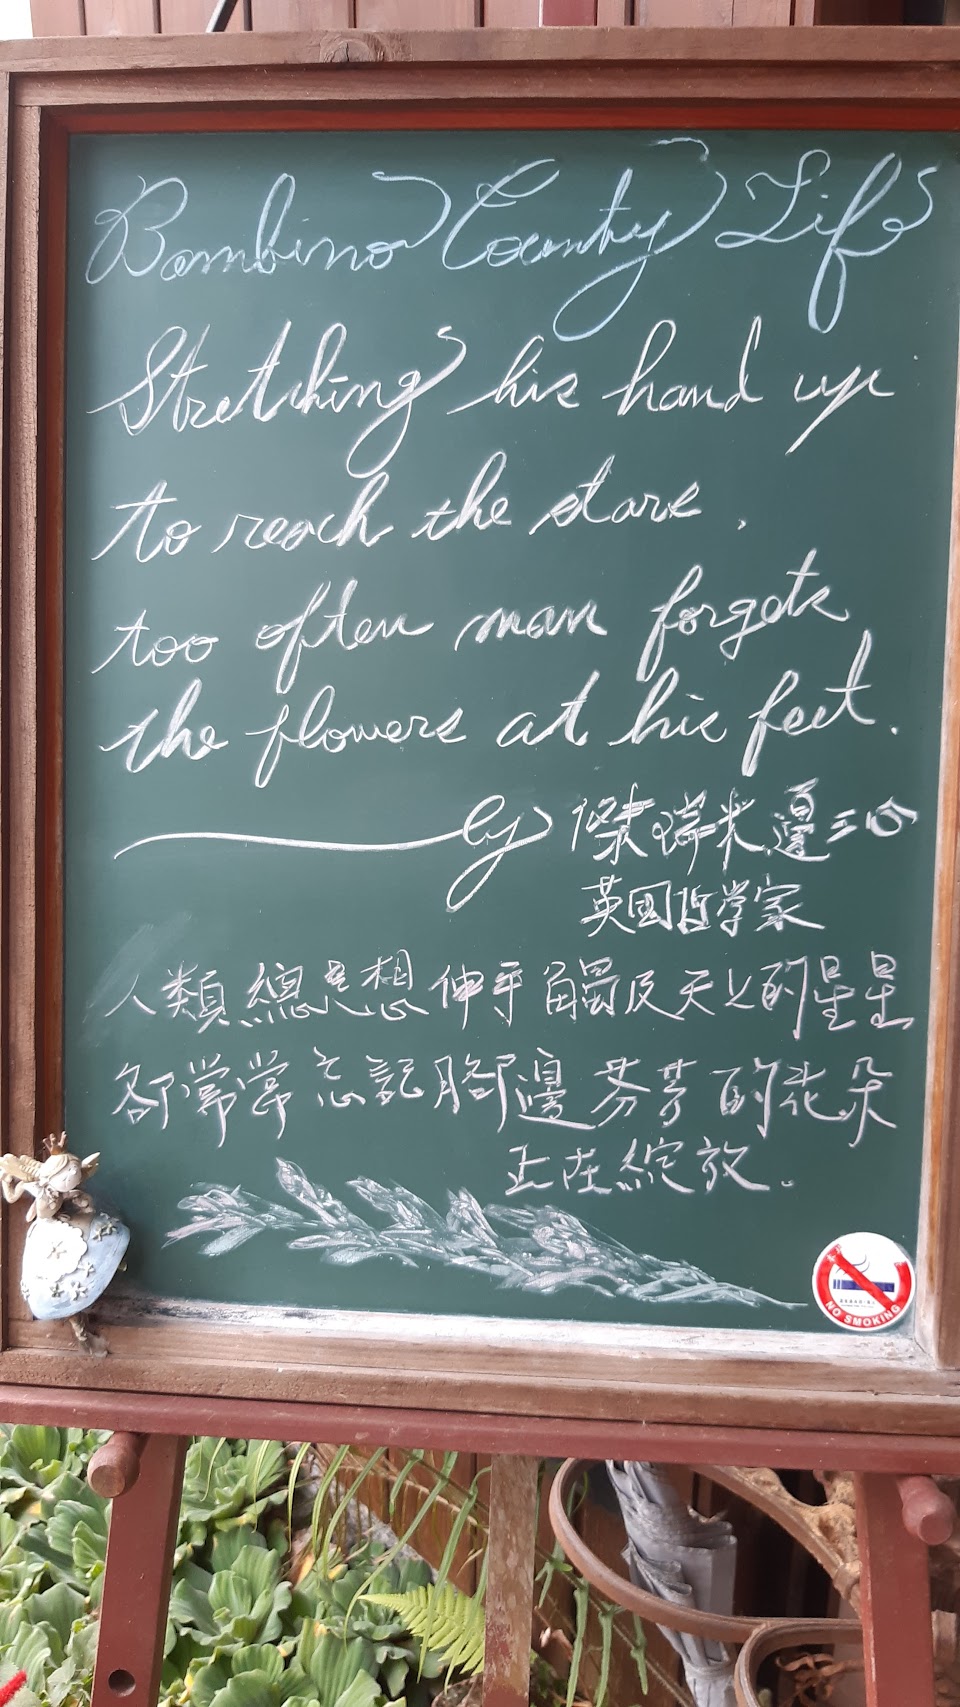 Bambino County Life
Stretching his hand up
to reach the stars.
too often man forgets
the flowers at his feet.
by 傑瑞米邊沁
英國哲学家
人類總是想伸手觸及天上的星星
卻常常忘記腳邊芬芳的花朵
正在綻放。
NO SMOKING